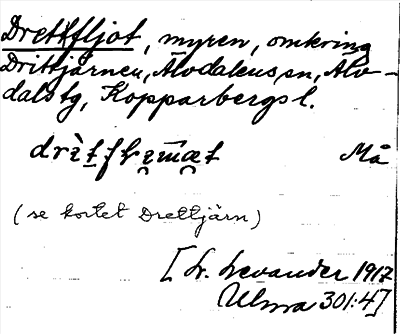 Drettfljot, myren, omkring
Drittjärnen, Älvdalens sn, Älv-
dals tg, Kopparbergs l.
Må
(se kortet Drettjärn)
[L. Levander 1917
Ulma 301:4]